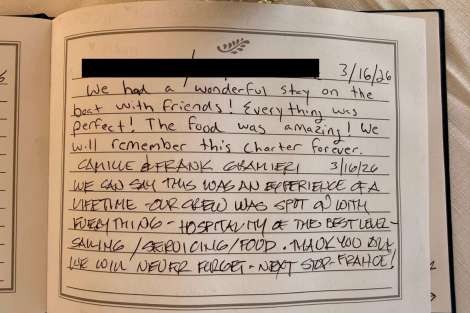 3/16/26
We had a wonderful stay on the
boat with friends! Everything was
perfect! The food was amazing! We
will remember this charter forever.
CAMILLE & FRANK 3/16/26
WE CAN SAY THIS WAS AN EXPERIENCE OF A
LIFETIME - OUR CREW WAS SPOT ON WITH
EVERYTHING - HOSPITALITY OF THE BEST LEVEL -
SAILING / SERVICING / FOOD. THANK YOU ALL
WE WILL NEVER FORGET - NEXT STOP - FRANCE!